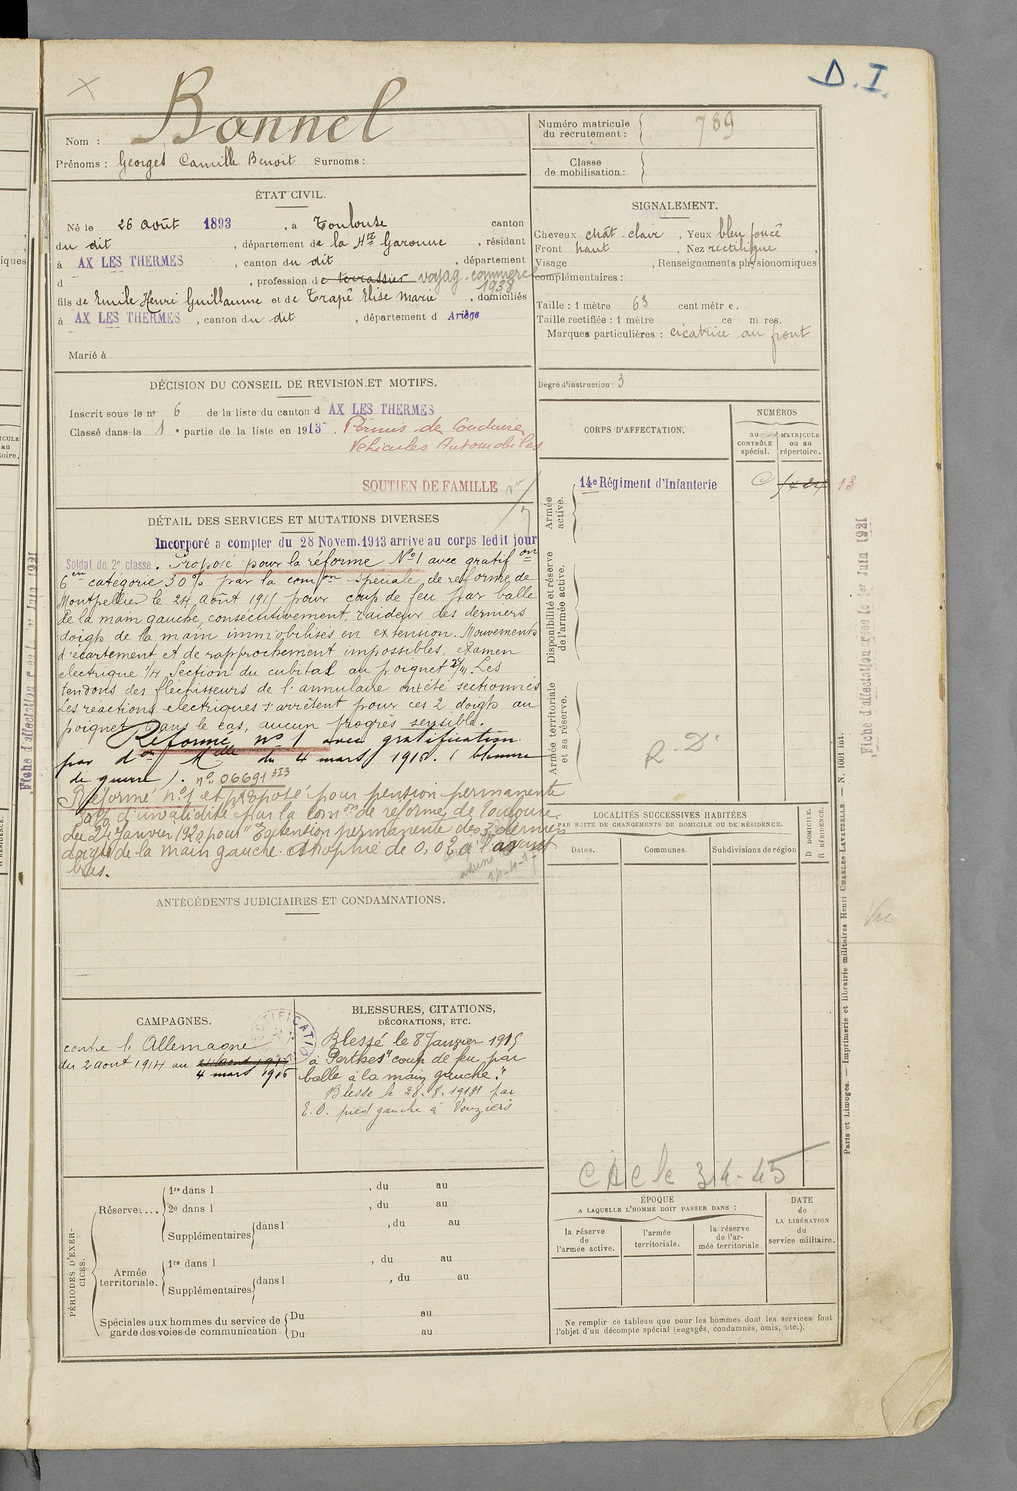 D. I.
Bonnel
Nom :
Prénoms : Georges Camille Benoit Surnoms :
Numéro matricule du recrutement : 789
Classe de mobilisation :
ÉTAT CIVIL.
Né le 26 août 1893, à Toulouse canton
du dit, département de la Hte Garonne, résidant
à AX LES THERMES, canton du dit, département
d , profession de terrassier voyag. commerce
1938
fils de Emile Henri Guillaume et de Trapé Elise Marie, domiciliés
à AX LES THERMES, canton du dit, département d Ariège
Marié à
SIGNALEMENT.
Cheveux chât. clair, Yeux bleu foncé
Front haut, Nez rectiligne,
Visage , Renseignements physionomiques
complémentaires :
Taille : 1 mètre 63 centimètre.
Taille rectifiée : 1 mètre
Marques particulières : cicatrice au front
Degré d'instruction : 3
DÉCISION DU CONSEIL DE REVISION ET MOTIFS.
Inscrit sous le n° 6 de la liste du canton d AX LES THERMES
Classé dans la 1e partie de la liste en 1913. Permis de Conduire
Véhicules Automobiles
SOUTIEN DE FAMILLE
DÉTAIL DES SERVICES ET MUTATIONS DIVERSES
Incorporé a compter du 28 Novem. 1913 arrive au corps ledit jour
Soldat de 2e classe. Proposé pour la réforme N°1 avec gratifon
6em catégorie 30% par la comon spéciale de réforme de
Montpellier le 24 août 1915 pour coup de feu par balle
de la main gauche, consécutivement raideur des derniers
doigts de la main immobilisés en extension. Mouvements
d'écartement et de rapprochement impossibles, examen
electrique 1/4 section du cubital au poignet 2/4. Les
tendons des fléchisseurs de l'annulaire ont été sectionnés
Les réactions electriques s'arrêtent pour ces 2 doigts au
poignet, dans le cas, aucun progrès sensible.
Réformé n° 1 avec gratification
par don Mlle du 4 mars 1916. (blessure
de guerre). n° 06691 313
Réformé n°1 et proposé pour pension permanente
d'invalidité par la comon de réforme de Toulouse
du 24 Janvier 1920 pour "Extension permanente des 3 derniers
doigts de la main gauche. atrophie de 0,02 à l'avant
bras.
ANTÉCÉDENTS JUDICIAIRES ET CONDAMNATIONS.
CAMPAGNES.
contre l'Allemagne
du 2 août 1914 au 24 août 1915
4 mars 1916
BLESSURES, CITATIONS,
DÉCORATIONS, ETC.
Blessé le 8 Janvier 1915
à Perthes "coup de feu par
balle à la main gauche."
Blessé le 28.8.1914 par
E.O. pied gauche à Vouziers
CORPS D'AFFECTATION.
NUMÉROS
AU CONTRÔLE spécial.
MATRICULE OU AU répertoire.
Armée active.
14e Régiment d'Infanterie
13
Disponibilité et réserve de l'armée active.
Armée territoriale et sa réserve.
R. D.
LOCALITÉS SUCCESSIVES HABITÉES
PAR SUITE DE CHANGEMENTS DE DOMICILE OU DE RÉSIDENCE.
Dates. Communes. Subdivisions de région
D DOMICILE.
R RÉSIDENCE.
ÉPOQUE
A LAQUELLE L'HOMME DOIT PASSER DANS :
la réserve de l'armée active.
l'armée territoriale.
la réserve de l'armée territoriale
DATE de LA LIBÉRATION du service militaire.
Ne remplir ce tableau que pour les hommes dont les services font
l'objet d'un décompte spécial (engagés, condamnés, omis, etc.).
PÉRIODES D'EXERCICES.
Réserve....
1re dans l , du au
2e dans l , du au
Supplémentaires dans l , du au
Armée territoriale.
1re dans l , du au
Supplémentaires dans l , du au
Spéciales aux hommes du service de
garde des voies de communication
Du au
Du au
Paris et Limoges. — Imprimerie et librairie militaires Henri CHARLES-LAVAUZELLE — N. 1001 int.
Vu